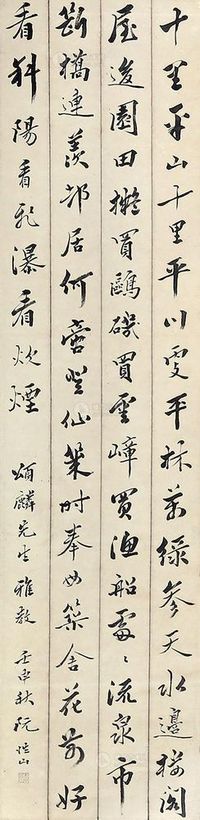 十里平山十里平川更平林萬綠參天水邊樓閣
屋後園田擬買鷗磯買雲嶂買漁船處〻流泉市
斷橋連羨郊居何啻登仙幾時奉母築舍花前好
看斜陽看飛瀑看炊煙
頌麟先生雅教 壬申秋阮性山